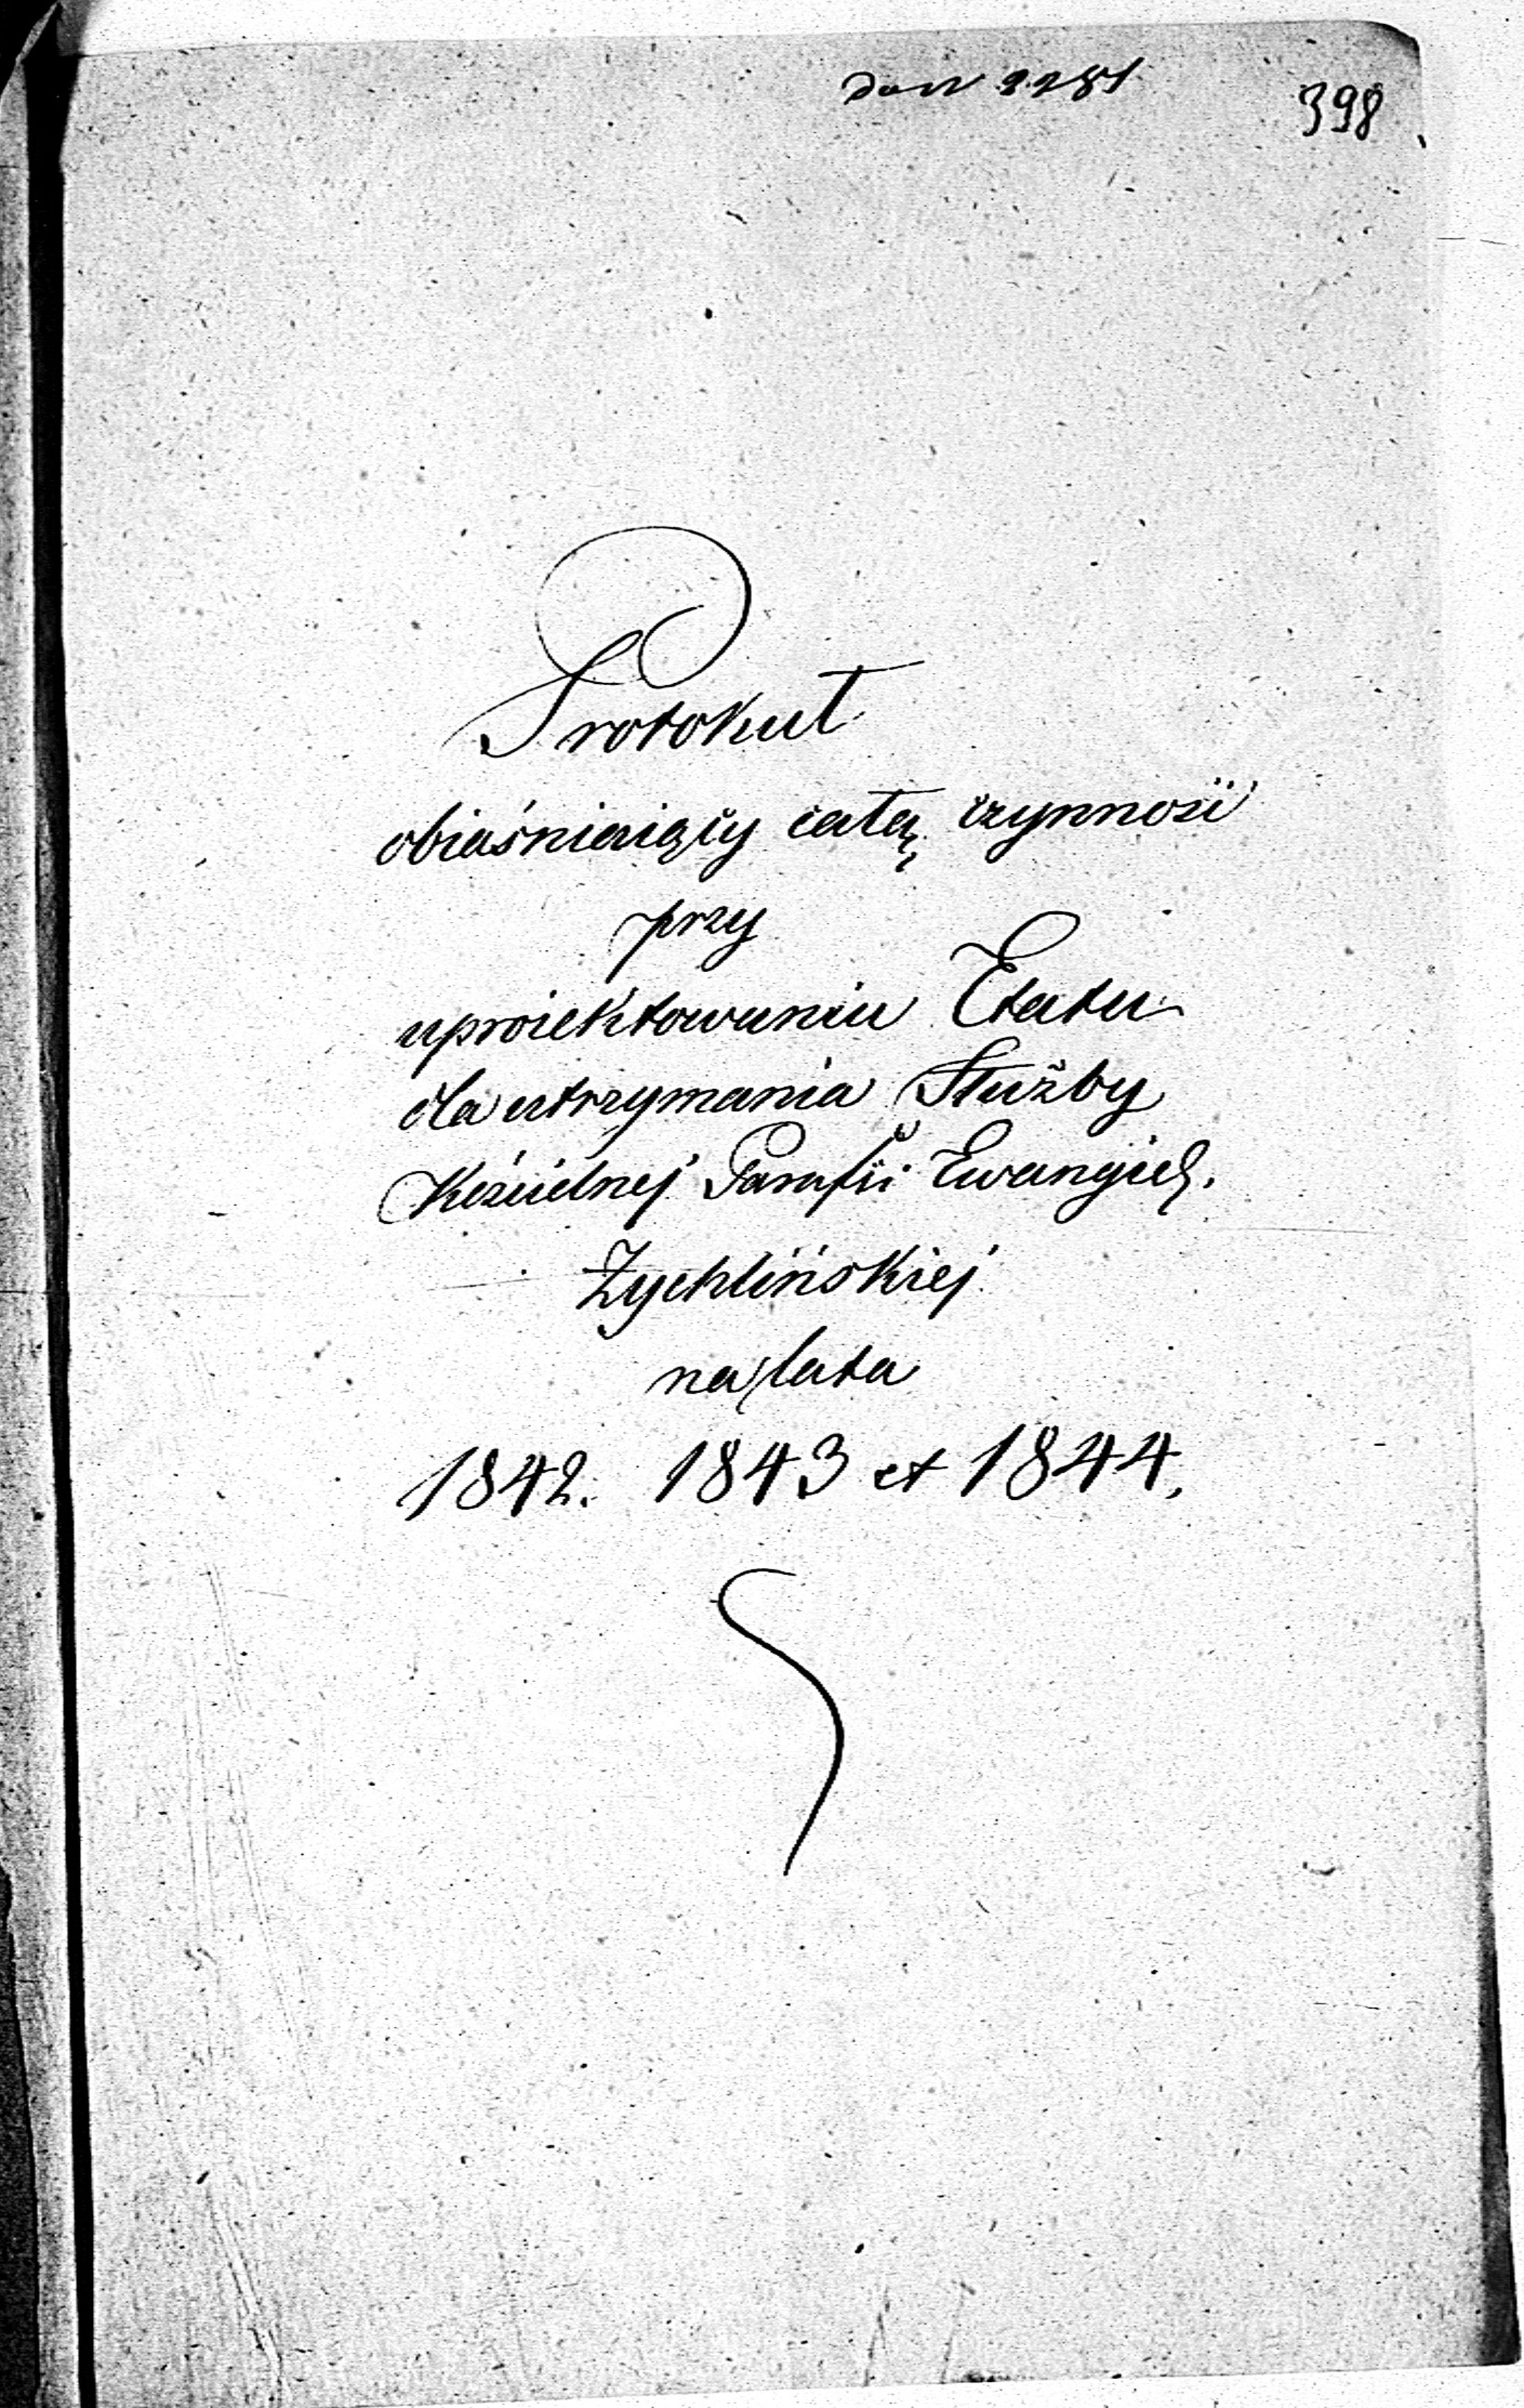 398
Protokuł
obiaśniaiący całą czynność
przy
uproiektowaniu Etatu
dla utrzymania Służby
Kościelnej Parafii Ewangiel.
Żychlińskiej
na lata
1842. 1843 et 1844.